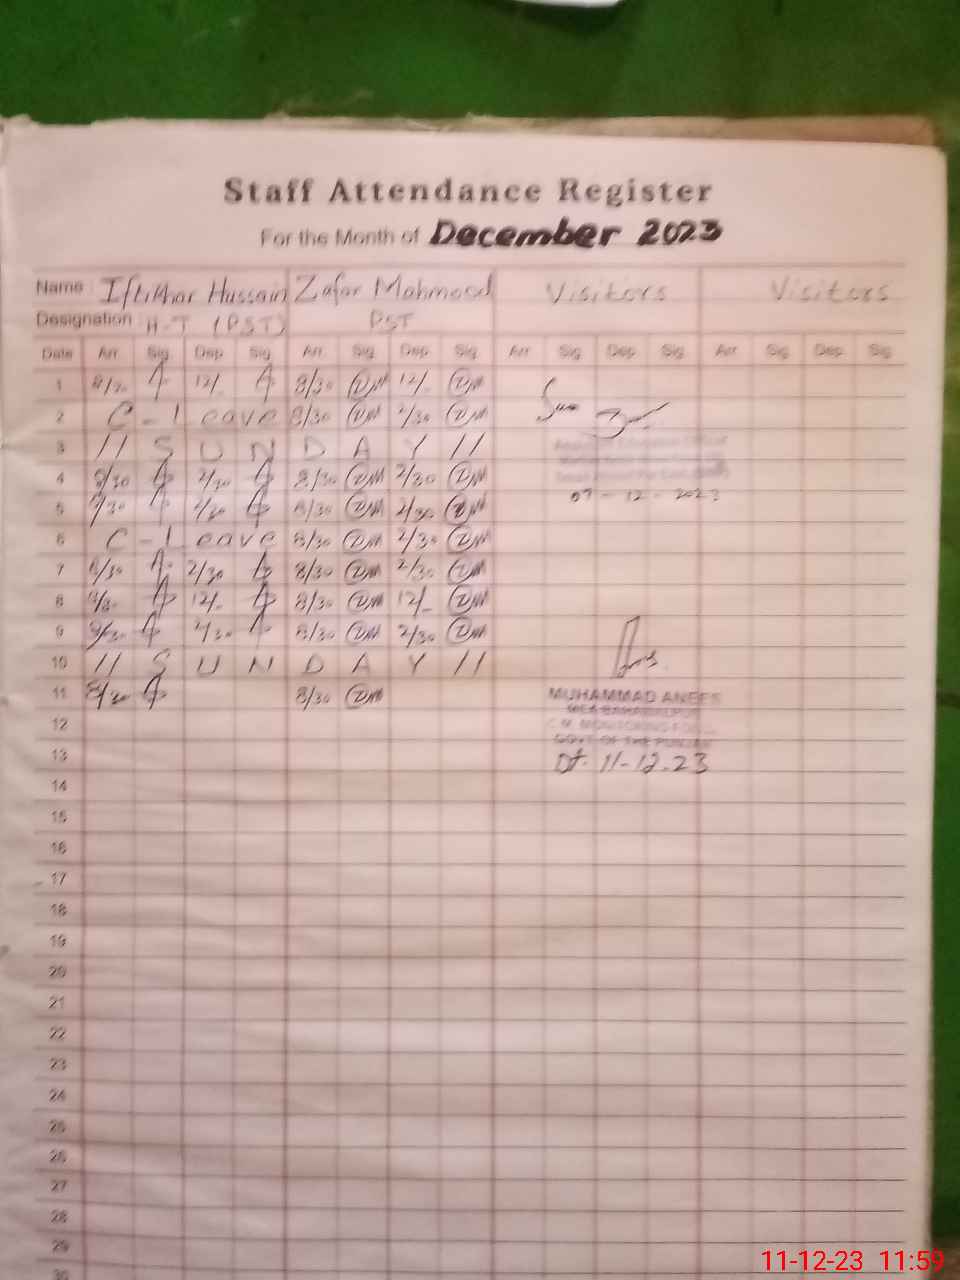 Staff Attendance Register
For the Month of December 2023
Name Iftikhar Hussain Zafar Mahmood Visitors Visitors
Designation H-T (PST) PST
Date Arr Sig Dep Sig Arr Sig Dep Sig Arr Sig Dep Sig Arr Sig Dep Sig
1 8/30 12/- 8/30 ZM 12/- ZM
2 C-Leave 8/30 ZM 2/30 ZM
3 // S U N D A Y //
4 8/30 2/30 8/30 ZM 2/30 ZM
07-12-2023
5 8/30 2/30 8/30 ZM 2/30 ZM
6 C-Leave 8/30 ZM 2/30 ZM
7 8/30 2/30 8/30 ZM 2/30 ZM
8 8/30 12/- 8/30 ZM 12/- ZM
9 8/30 2/30 8/30 ZM 2/30 ZM
10 // S U N D A Y //
11 8/30 8/30 ZM
MUHAMMAD ANEES
MEA BAHAWALPUR
C.M. MONITORING FORCE
GOVT OF THE PUNJAB
Dt. 11-12-23
12
13
14
15
16
17
18
19
20
21
22
23
24
25
26
27
28
29
30
11-12-23 11:59